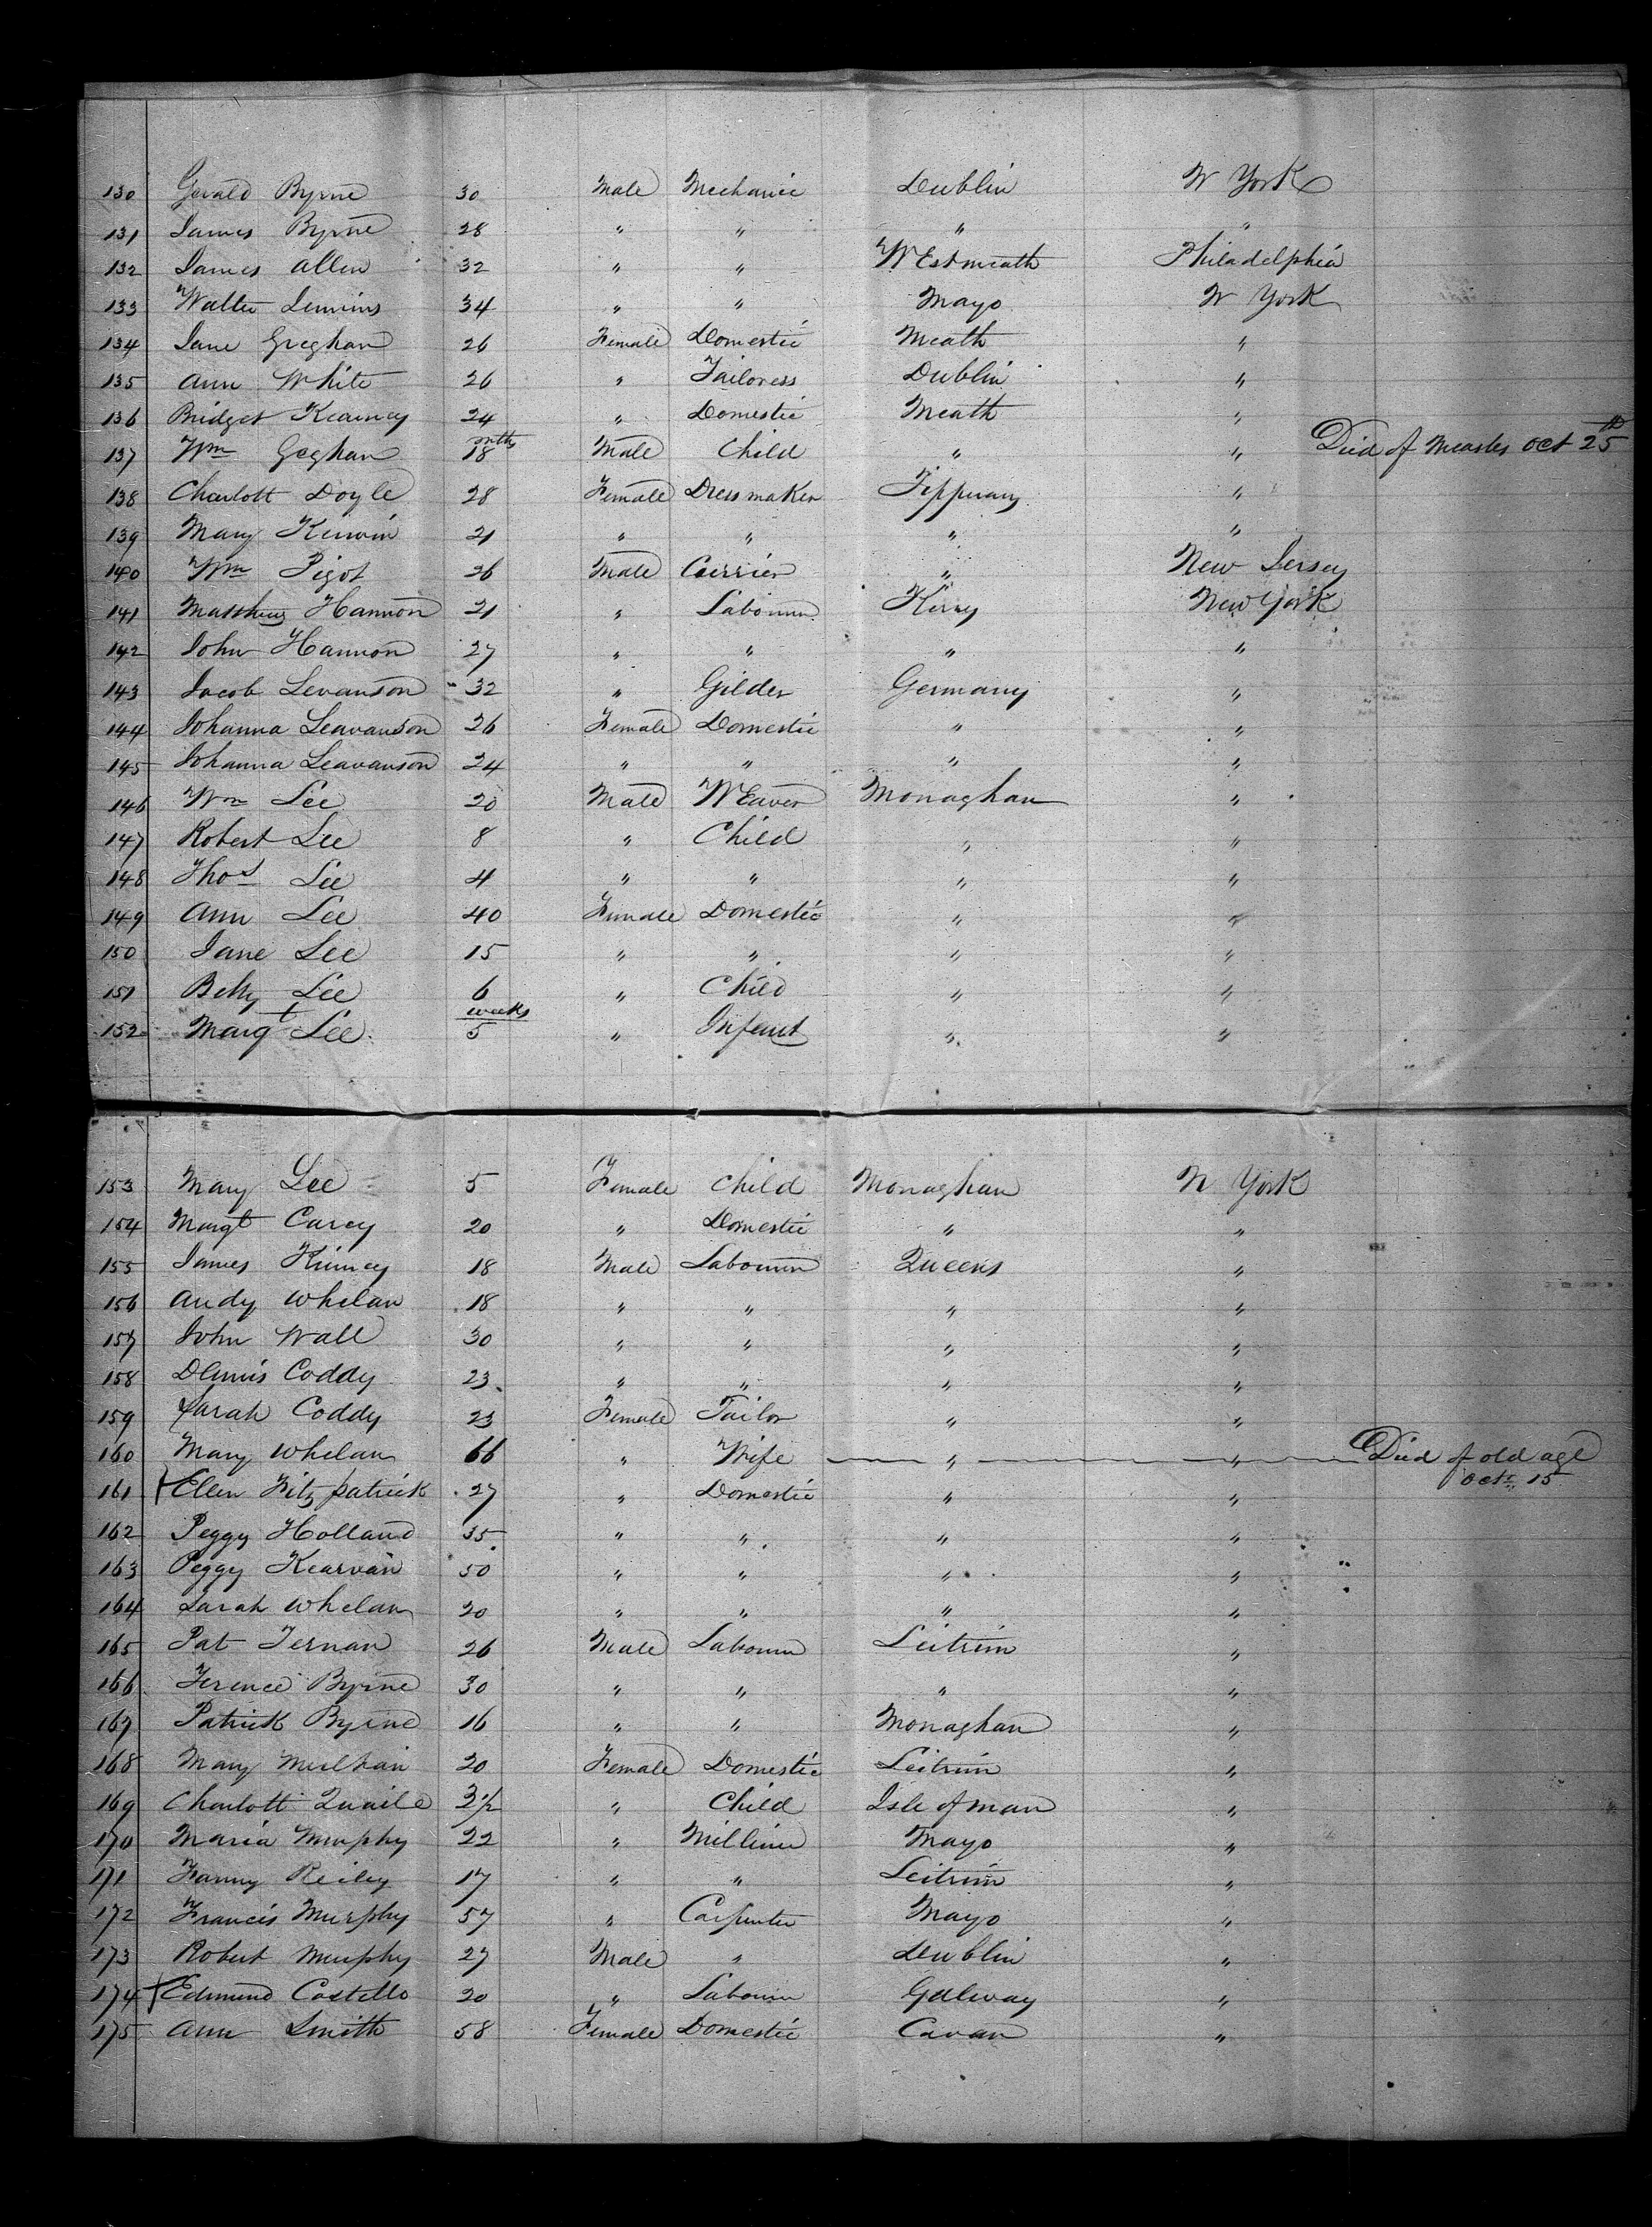 130 Gerald Byrne 30 Male Mechanic Dublin N York
131 James Byrne 28 " " " "
132 James Allen 32 " " WEstmeath Philadelphia
133 Walter 34 " " Mayo N York
134 Jane Greghan 26 Female Domestic Meath "
135 Ann White 26 " Tailoress Dublin "
136 Bridget Kearney 24 " Domestic Meath "
137 Wm Geghan 18 mths Male Child " " Died of Measles Oct 25th
138 Charlott Doyle 28 Female Dressmaker Tipperary "
139 Mary Kirwin 21 " " " "
140 Wm Pigot 26 Male Currier " New Jersey
141 Matthew Hannon 21 " Labourer Kerry New York
142 John Hannon 27 " " " "
143 Jacob Levanson 32 " Gilder Germany "
144 Johanna Leavanson 26 Female Domestic " "
145 Johanna Leavanson 24 " " " "
146 Wm Lee 20 Male WEaver Monaghan "
147 Robert Lee 8 " Child " "
148 Thos Lee 4 " " " "
149 Ann Lee 40 Female Domestic " "
150 Jane Lee 15 " " " "
151 Betty Lee 6 " Child " "
152 Margt Lee 5 weeks " Infant " "
153 Mary Lee 5 Female Child Monaghan N York
154 Margt Carey 20 " Domestic " "
155 James 18 Male Labourer Queens "
156 Andy Whelan 18 " " " "
157 John Wall 30 " " " "
158 Dennis Coddy 23 " " " "
159 Sarah Coddy 23 Female Tailor " "
160 Mary Whelan 66 " Wife " " Died of old age
Oct. 15
161 Ellen Fitzpatrick 27 " Domestic " "
162 Peggy Holland 35 " " " "
163 Peggy Kearvan 50 " " " "
164 Sarah Whelan 20 " " " "
165 Pat Ternan 26 Male Labourer Leitrim "
166 Terence Byrne 30 " " " "
167 Patrick Byrne 16 " " Monaghan "
168 Mary 20 Female Domestic Leitrim "
169 Charlott Quaile 3½ " Child Isle of man "
170 Maria Murphy 22 " Milliner Mayo "
171 Fanny Reiley 17 " " Leitrim "
172 Francis Murphy 57 " Carpenter Mayo "
173 Robert Murphy 27 Male " Dublin "
174 Edmund Costello 20 " Labourer Galway "
175 Ann Smith 58 Female Domestic Cavan "